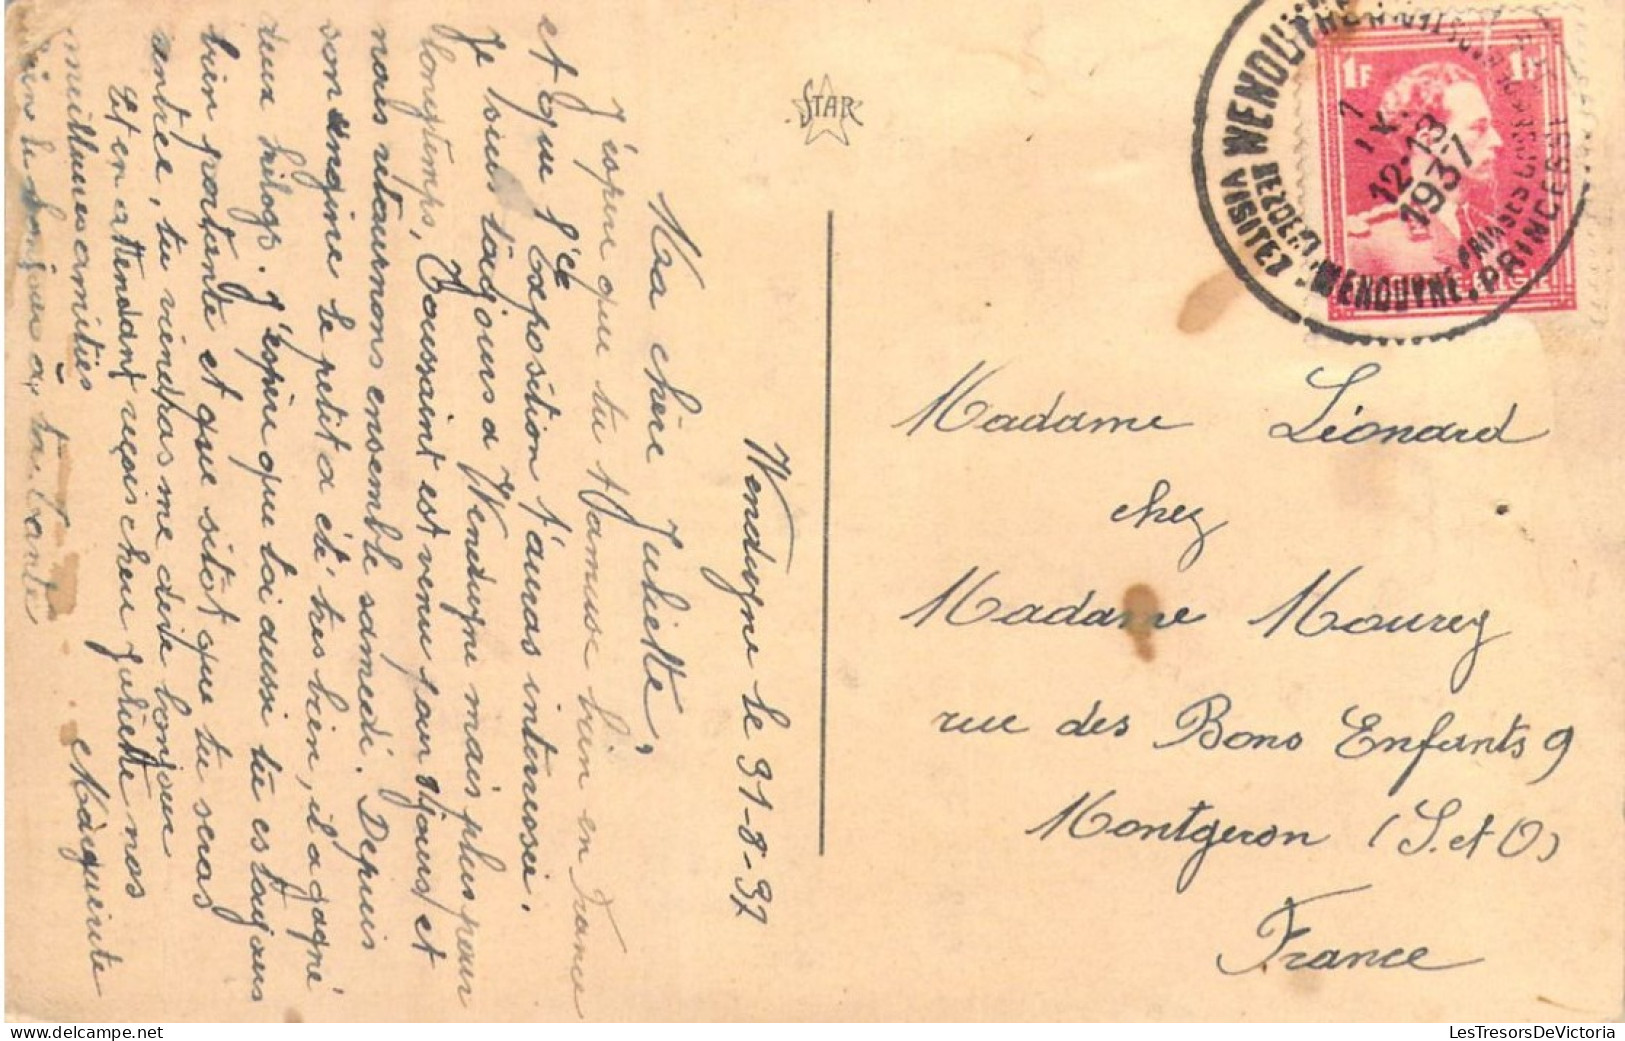 Wenduyne le 31-8-37
Ma chère Juliette,
J'espère que tu t'amuse bien en France
et que l'Exposition t'auras interressée.
Je suis toujours a Wenduyne mais plus pour
longtemps, Toussaint est venu pour 8 jours et
nous retournons ensemble samedi. Depuis
son angine le petit a été très bien, il a gagné
deux kilogs. J'espère que toi aussi tu es toujours
bien portante et que sitôt que tu seras
rentrée, tu viendras me dire bonjour
Et en attendant reçois chère Juliette nos
meilleures amitiés
Marguerite
bien le bonjour a ta tante
STAR
1F 1F
BEZOEKT WENDUYNE
VISITEZ WENDUYNE
PRINCESSE
7
12-13
1937
Madame Léonard
chez
Madame Mourey
rue des Bons Enfants 9
Montgeron (S. et O)
France
LesTresorsDeVictoria